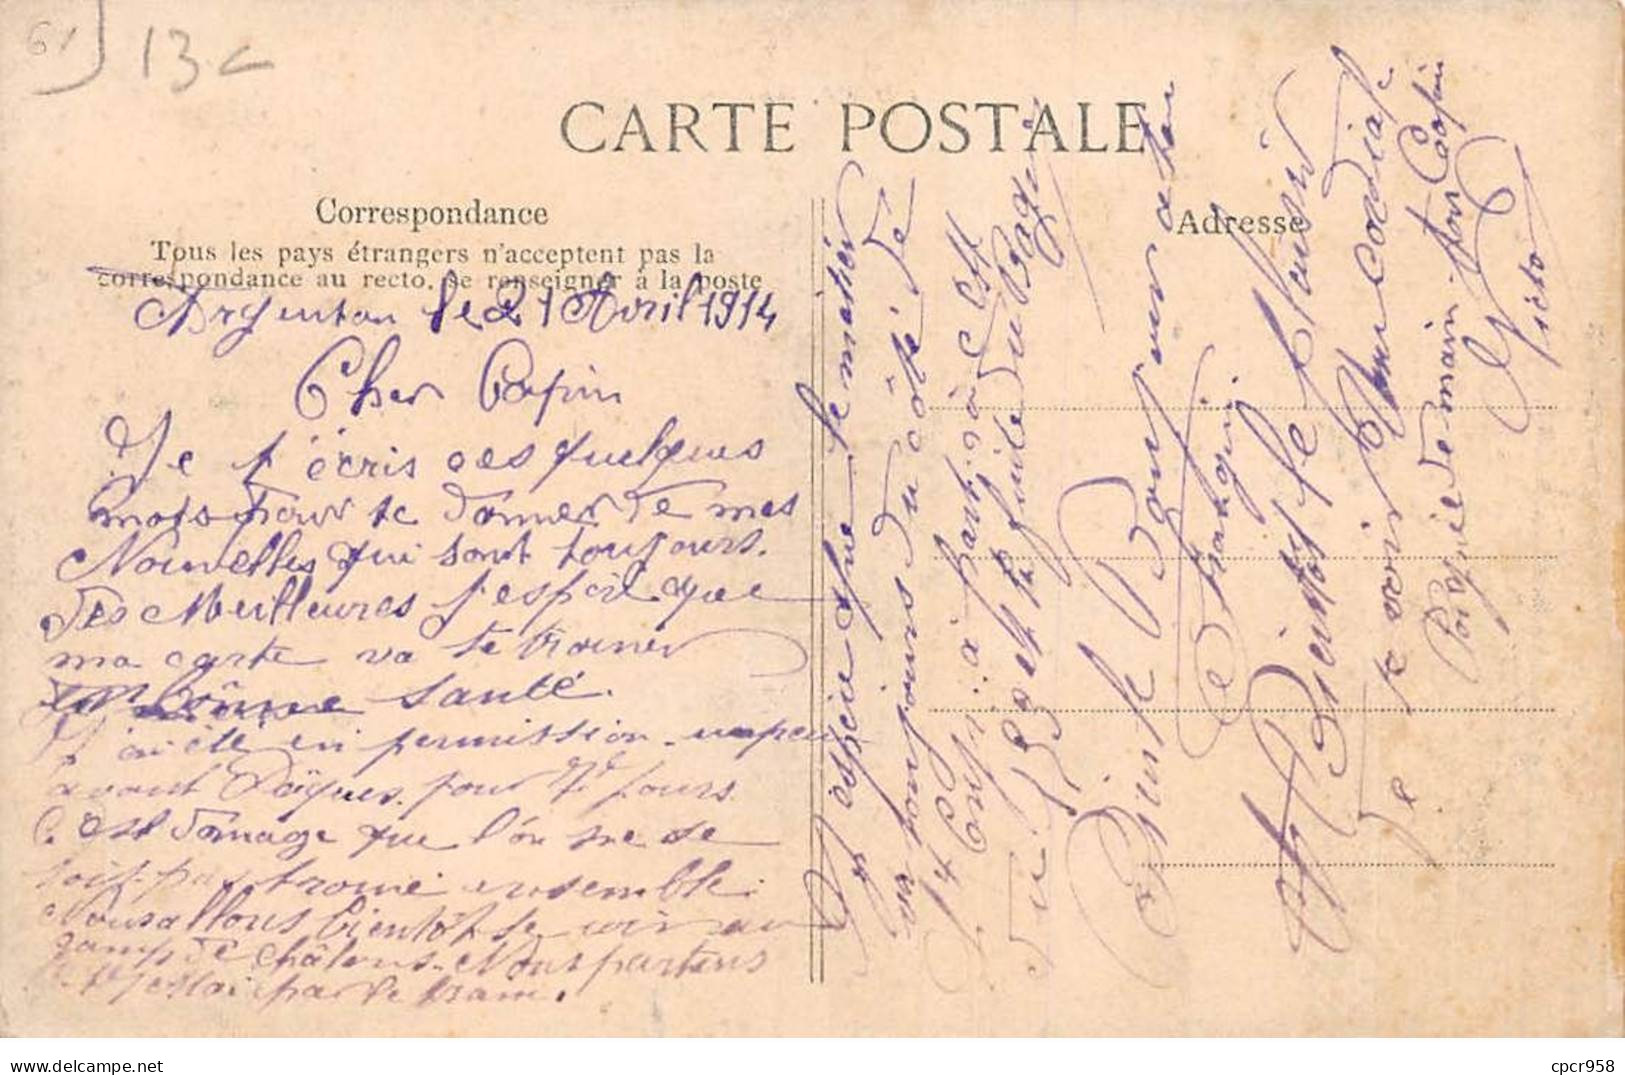 61
13
CARTE POSTALE
Correspondance
Tous les pays étrangers n'acceptent pas la
correspondance au recto, se renseigner à la poste
Adresse
Argentan le 21 Avril 1914
Cher Copin
Je t'écris ces quelques
mots pour te donner de mes
Nouvelles qui sont toujours
des Meilleures j'espère que
ma carte va te trouver
en bonne santé.
J'ai été en permission un peu
avant Pâques pour 7 jours
C'est domage que l'on ne se
soit pas trouvé ensemble
Nous allons bientôt se voir au
camp de Châlons. Nous partons
le 17 Mai par le train.
J'espère que le métier
va toujours du côté de
Corps à
et la fuite
Bien le Bonjour a ton
Frangin
Bientôt le Plaisir
de te voir Une cordiale
Poignée de main ton Copin
Victor
cpcr958